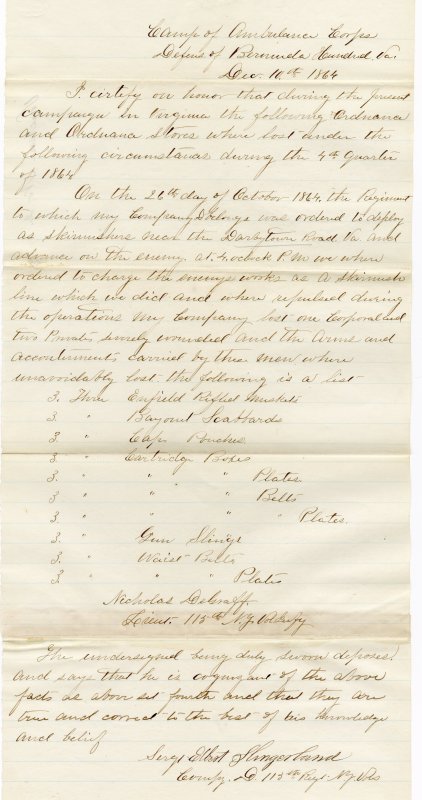 Camp of Ambulance Corps
Defens of Bermuda Hundred, Va.
Dec. 10th 1864
I certify on honor that during the present
campaign in Virginia the following Ordnance
and Ordnance Stores where lost under the
following circumstances during the 4th Quarter
of 1864
On the 26th day of October 1864, the Regiment
to which my Company D belongs was ordered to deploy
as skirmishers near the Darbytown Road Va and
advance on the enemy. at 4. oclock P.M we where
ordered to charge the enemys works as a skirmish
line which we did and where repulsed during
the operations my Company lost one Corporal and
two Privates, severely wounded and the Arms and
accoutrements carried by these men where
unavoidably lost. the following is a list
3. Three Enfield Rifled Muskets
3. " Bayonet Scabbards
3. " Cap Pouches
3. " Cartridge Boxes
3. " " " Plates
3. " " " Belts
3. " " " " Plates.
3. " Gun Slings
3. " Waist Belts
3. " " " Plates
Nicholas DeGraff
Lieut. 115th N.Y. Vol Infy
The undersigned being duly sworn deposes
and says that he is cognizant of the above
facts as above set fourth and that they are
true and correct to the best of his knowledge
and belief
Sergt Elbert Slingerland
Compy. D. 115th Regt N.Y. Vols